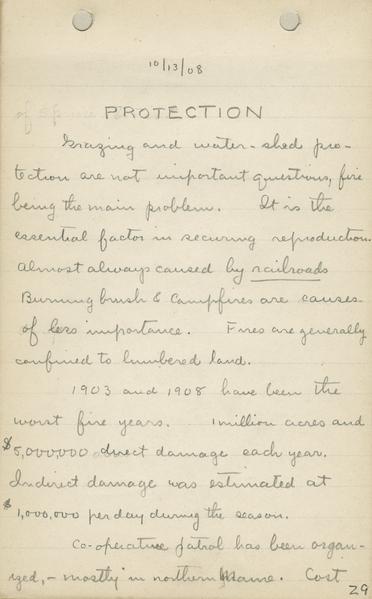 10/13/08
PROTECTION
Grazing and water-shed pro-
tection are not important questions, fire
being the main problem. It is the
essential factor in securing reproduction.
Almost always caused by railroads
Burning brush & Campfires are causes
of less importance. Fires are generally
confined to lumbered land.
1903 and 1908 have been the
worst fire years. 1 million acres and
$5,000,000 direct damage each year.
Indirect damage was estimated at
$1,000,000 per day during the season.
Co-operative patrol has been organ-
ized, - mostly in northern Maine. Cost
29